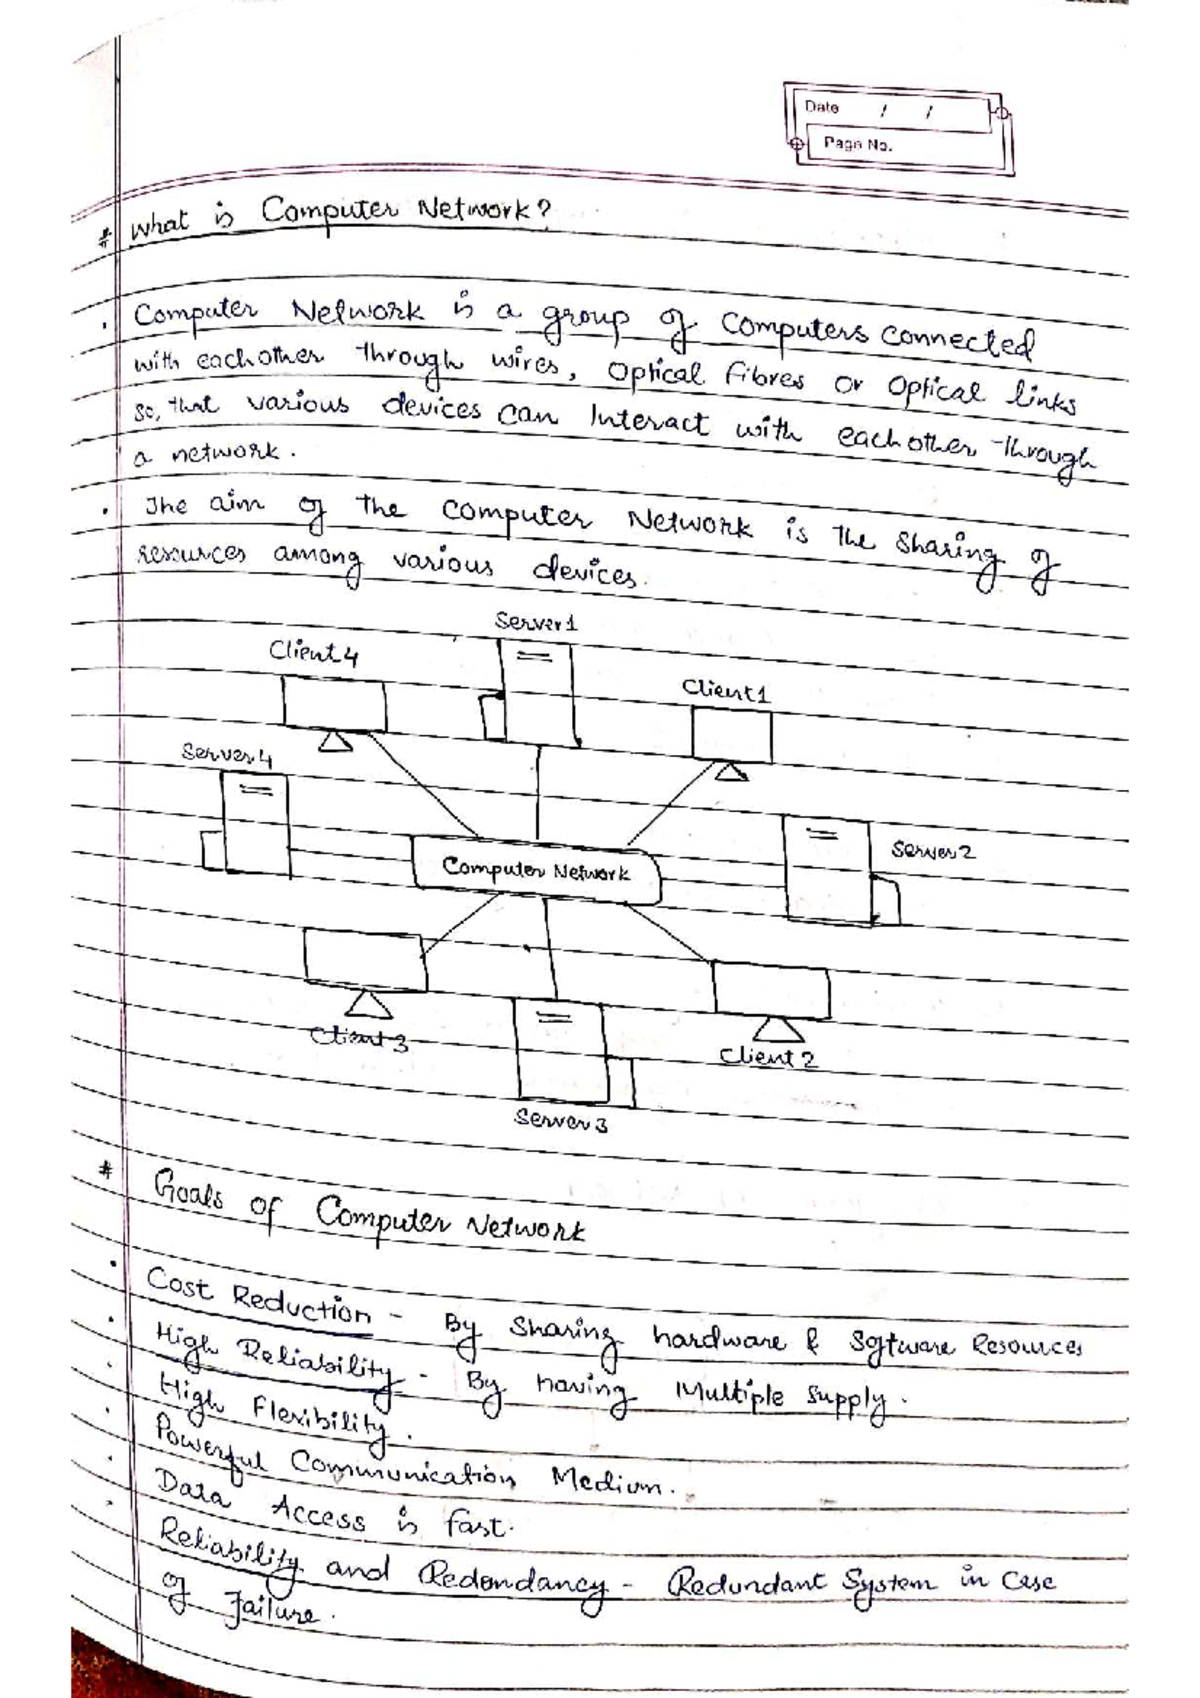 Date / /
Page No.
# What is Computer Network?
. Computer Network is a group of Computers connected
with eachother through wires, Optical fibres or Optical links
so, that various devices can Interact with eachother through
a network.
. The aim of the Computer Network is the sharing of
resources among various devices.
Server1
Client4
Client1
Server4
Server2
Computer Network
Client3
Client2
Server3
# Goals of Computer Network
. Cost Reduction - By Sharing hardware & Software Resources
. High Reliability - By having Multiple Supply.
. High Flexibility.
. Powerful Communication Medium.
. Data Access is fast.
. Reliability and Redondancy - Redundant System in Case
of Failure.